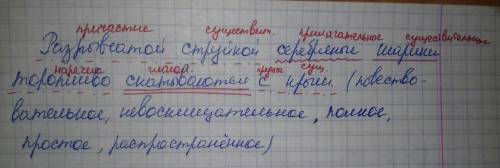 причастие существит. прилагательное существительное
Разрывчатой струйкой серебряные шарики
наречие глагол предлог сущ.
торопливо скатываются с крыш. (повество-
вательное, невосклицательное, полное,
простое, распространённое)